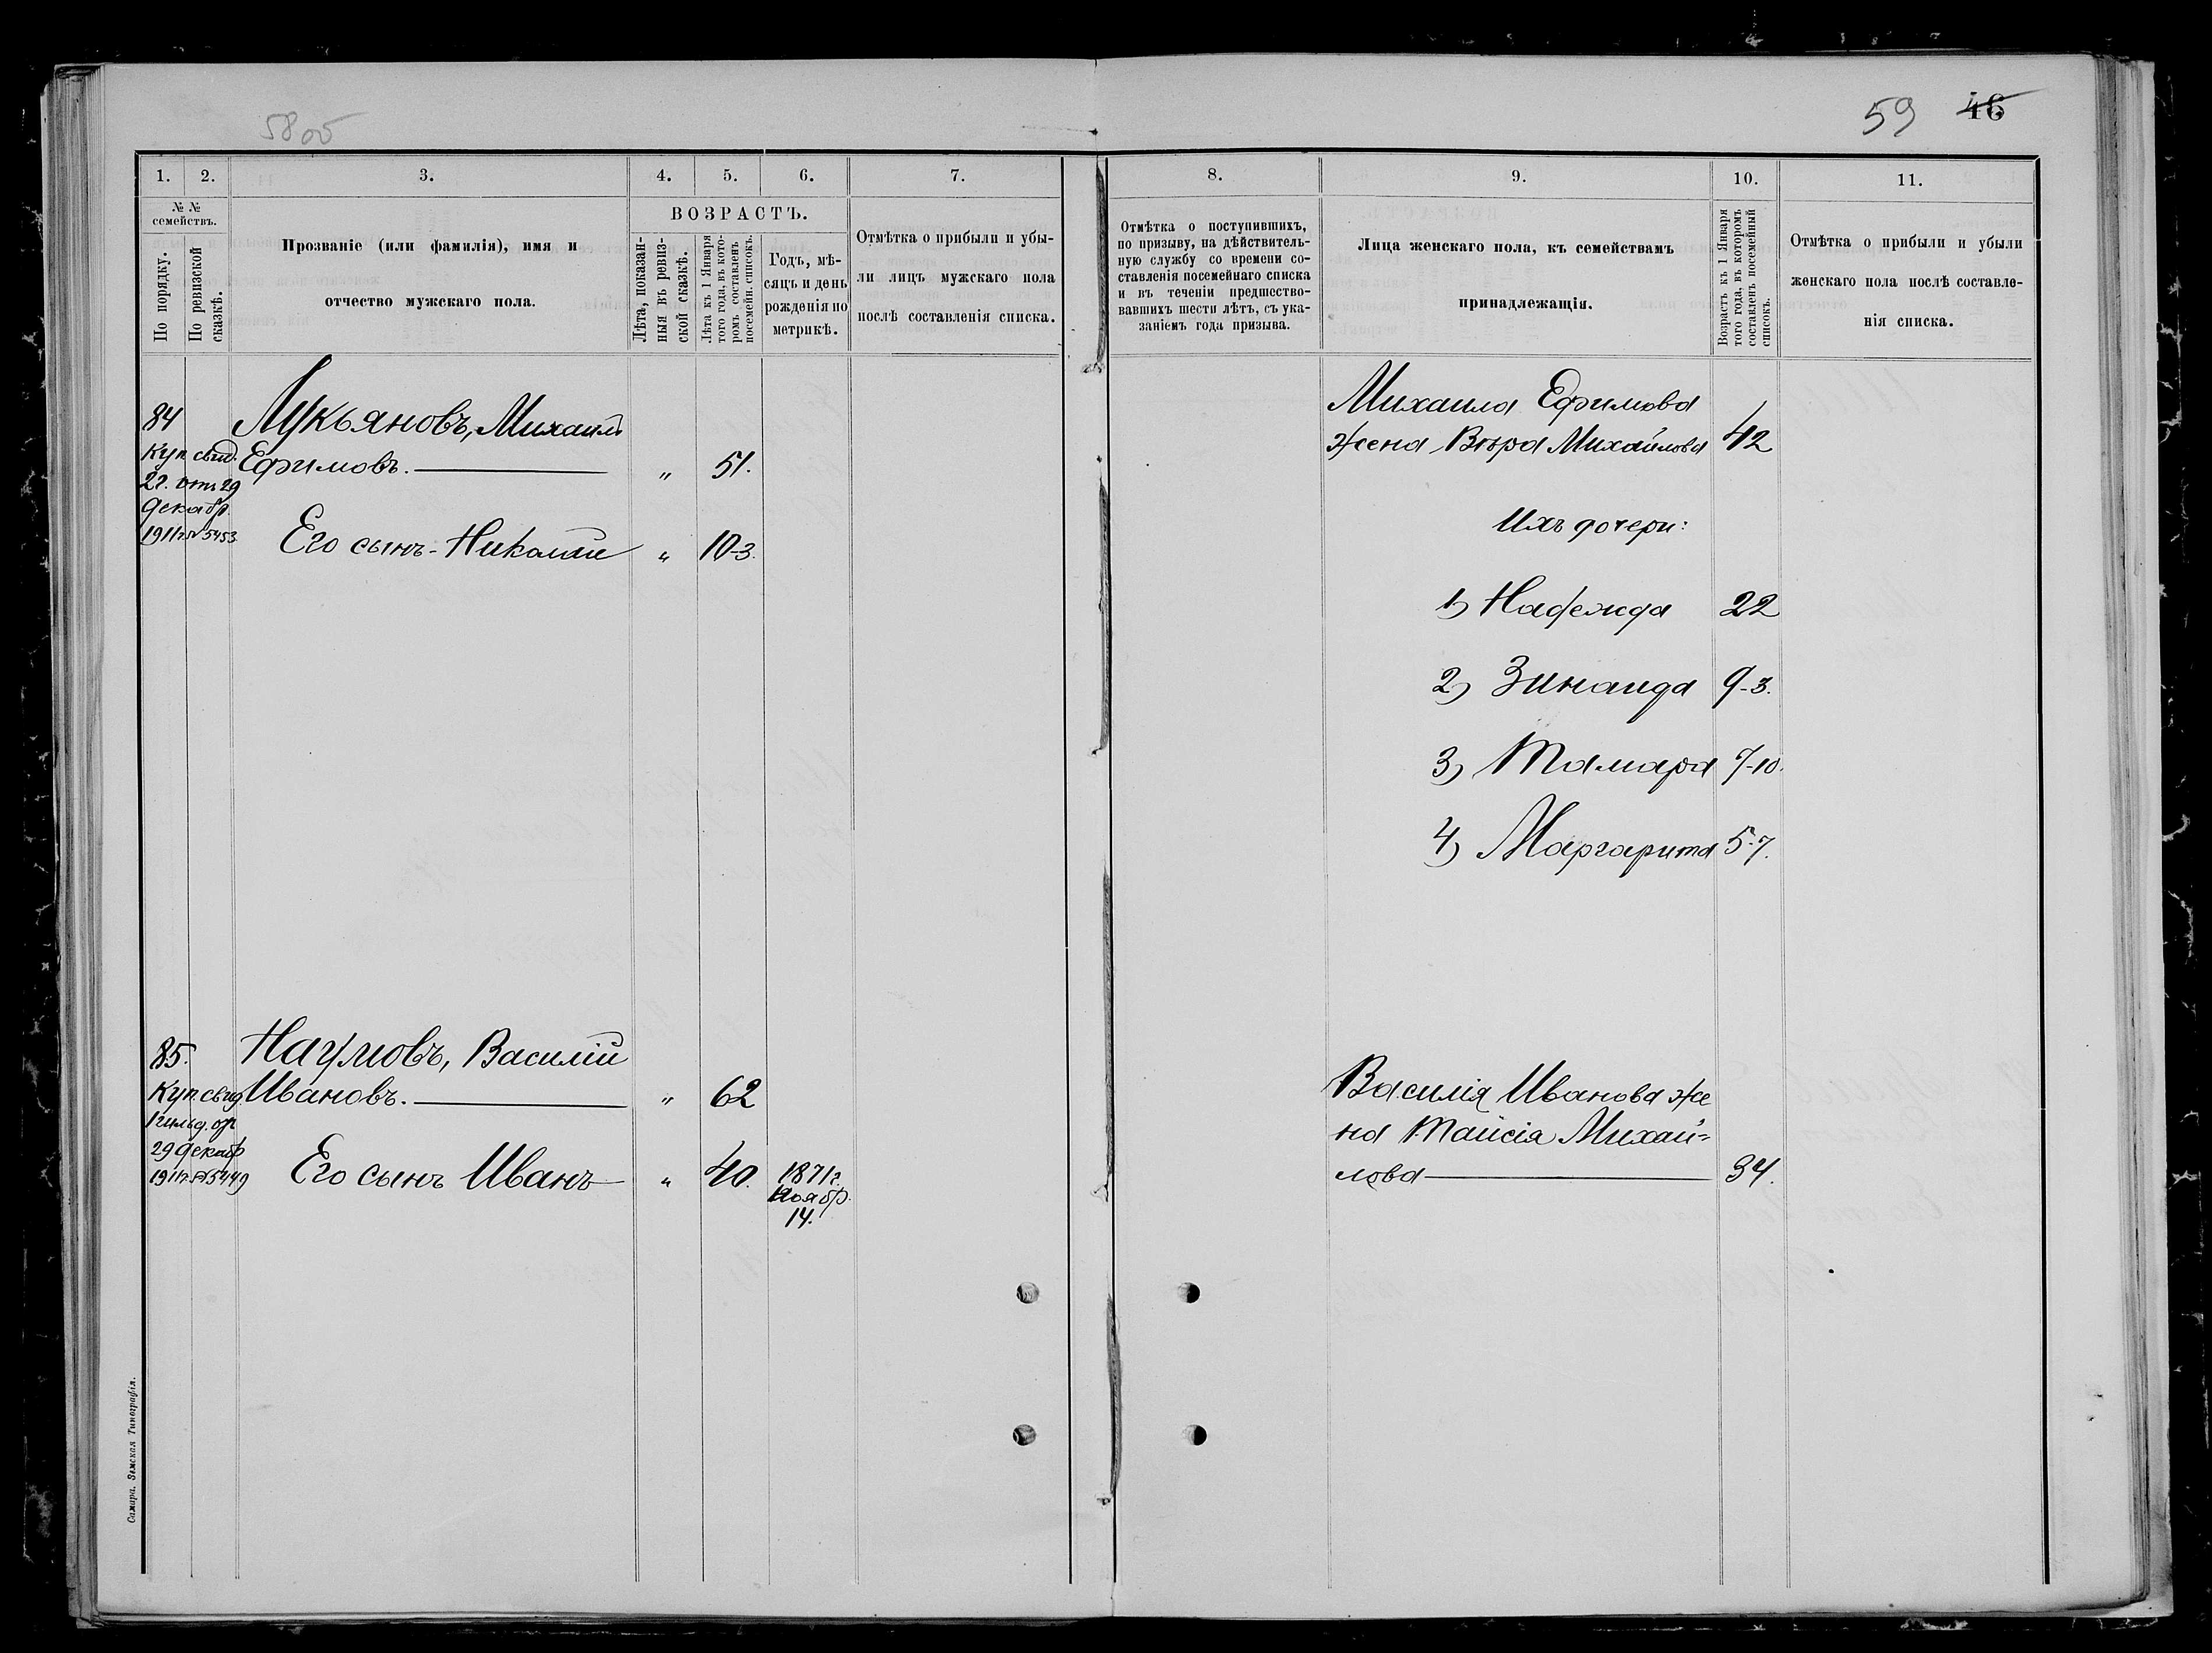 5805
59 46
1. 2. 3. 4. 5. 6. 7.
№ № семействъ.
По порядку.
По ревизской сказкѣ.
Прозваніе (или фамилія), имя и
отчество мужскаго пола.
ВОЗРАСТЪ.
Лѣта, показан-
ныя въ ревиз-
ской сказкѣ.
Лѣта къ 1 Января
того года, въ кото-
ромъ составленъ
посемейн. списокъ.
Годъ, мѣ-
сяцъ и день
рожденія по
метрикѣ.
Отмѣтка о прибыли и убы-
ли лицъ мужскаго пола
послѣ составленія списка.
84
Куп. свид.
2 г. отъ 29
декабр.
1911 г. № 5453
Лукьяновъ, Михаилъ
Ефимовъ. „ 51.
Его сынъ - Николай „ 10-3.
85.
Куп. свид.
1 гильд. от
29 декабр
1911 г. № 5449
Наумовъ, Василій
Ивановъ. „ 62
Его сынъ Иванъ „ 40. 1871 г.
Ноябр.
14.
Самара. Земская Типографія.
8. 9. 10. 11.
Отмѣтка о поступившихъ,
по призыву, на дѣйствитель-
ную службу со времени со-
ставленія посемейнаго списка
и въ теченіи предшество-
вавшихъ шести лѣтъ, съ ука-
заніемъ года призыва.
Лица женскаго пола, къ семействамъ
принадлежащія.
Возрастъ къ 1 Января
того года, въ которомъ
составленъ посемейный
списокъ.
Отмѣтка о прибыли и убыли
женскаго пола послѣ составле-
нія списка.
Михаила Ефимова
жена Вѣра Михайлова 42
Ихъ дочери:
1) Надежда 22
2) Зинаида 9-3.
3) Тамара 7-10.
4) Маргарита 5-7.
Василія Иванова же
на Таисія Михай=
лова 34.